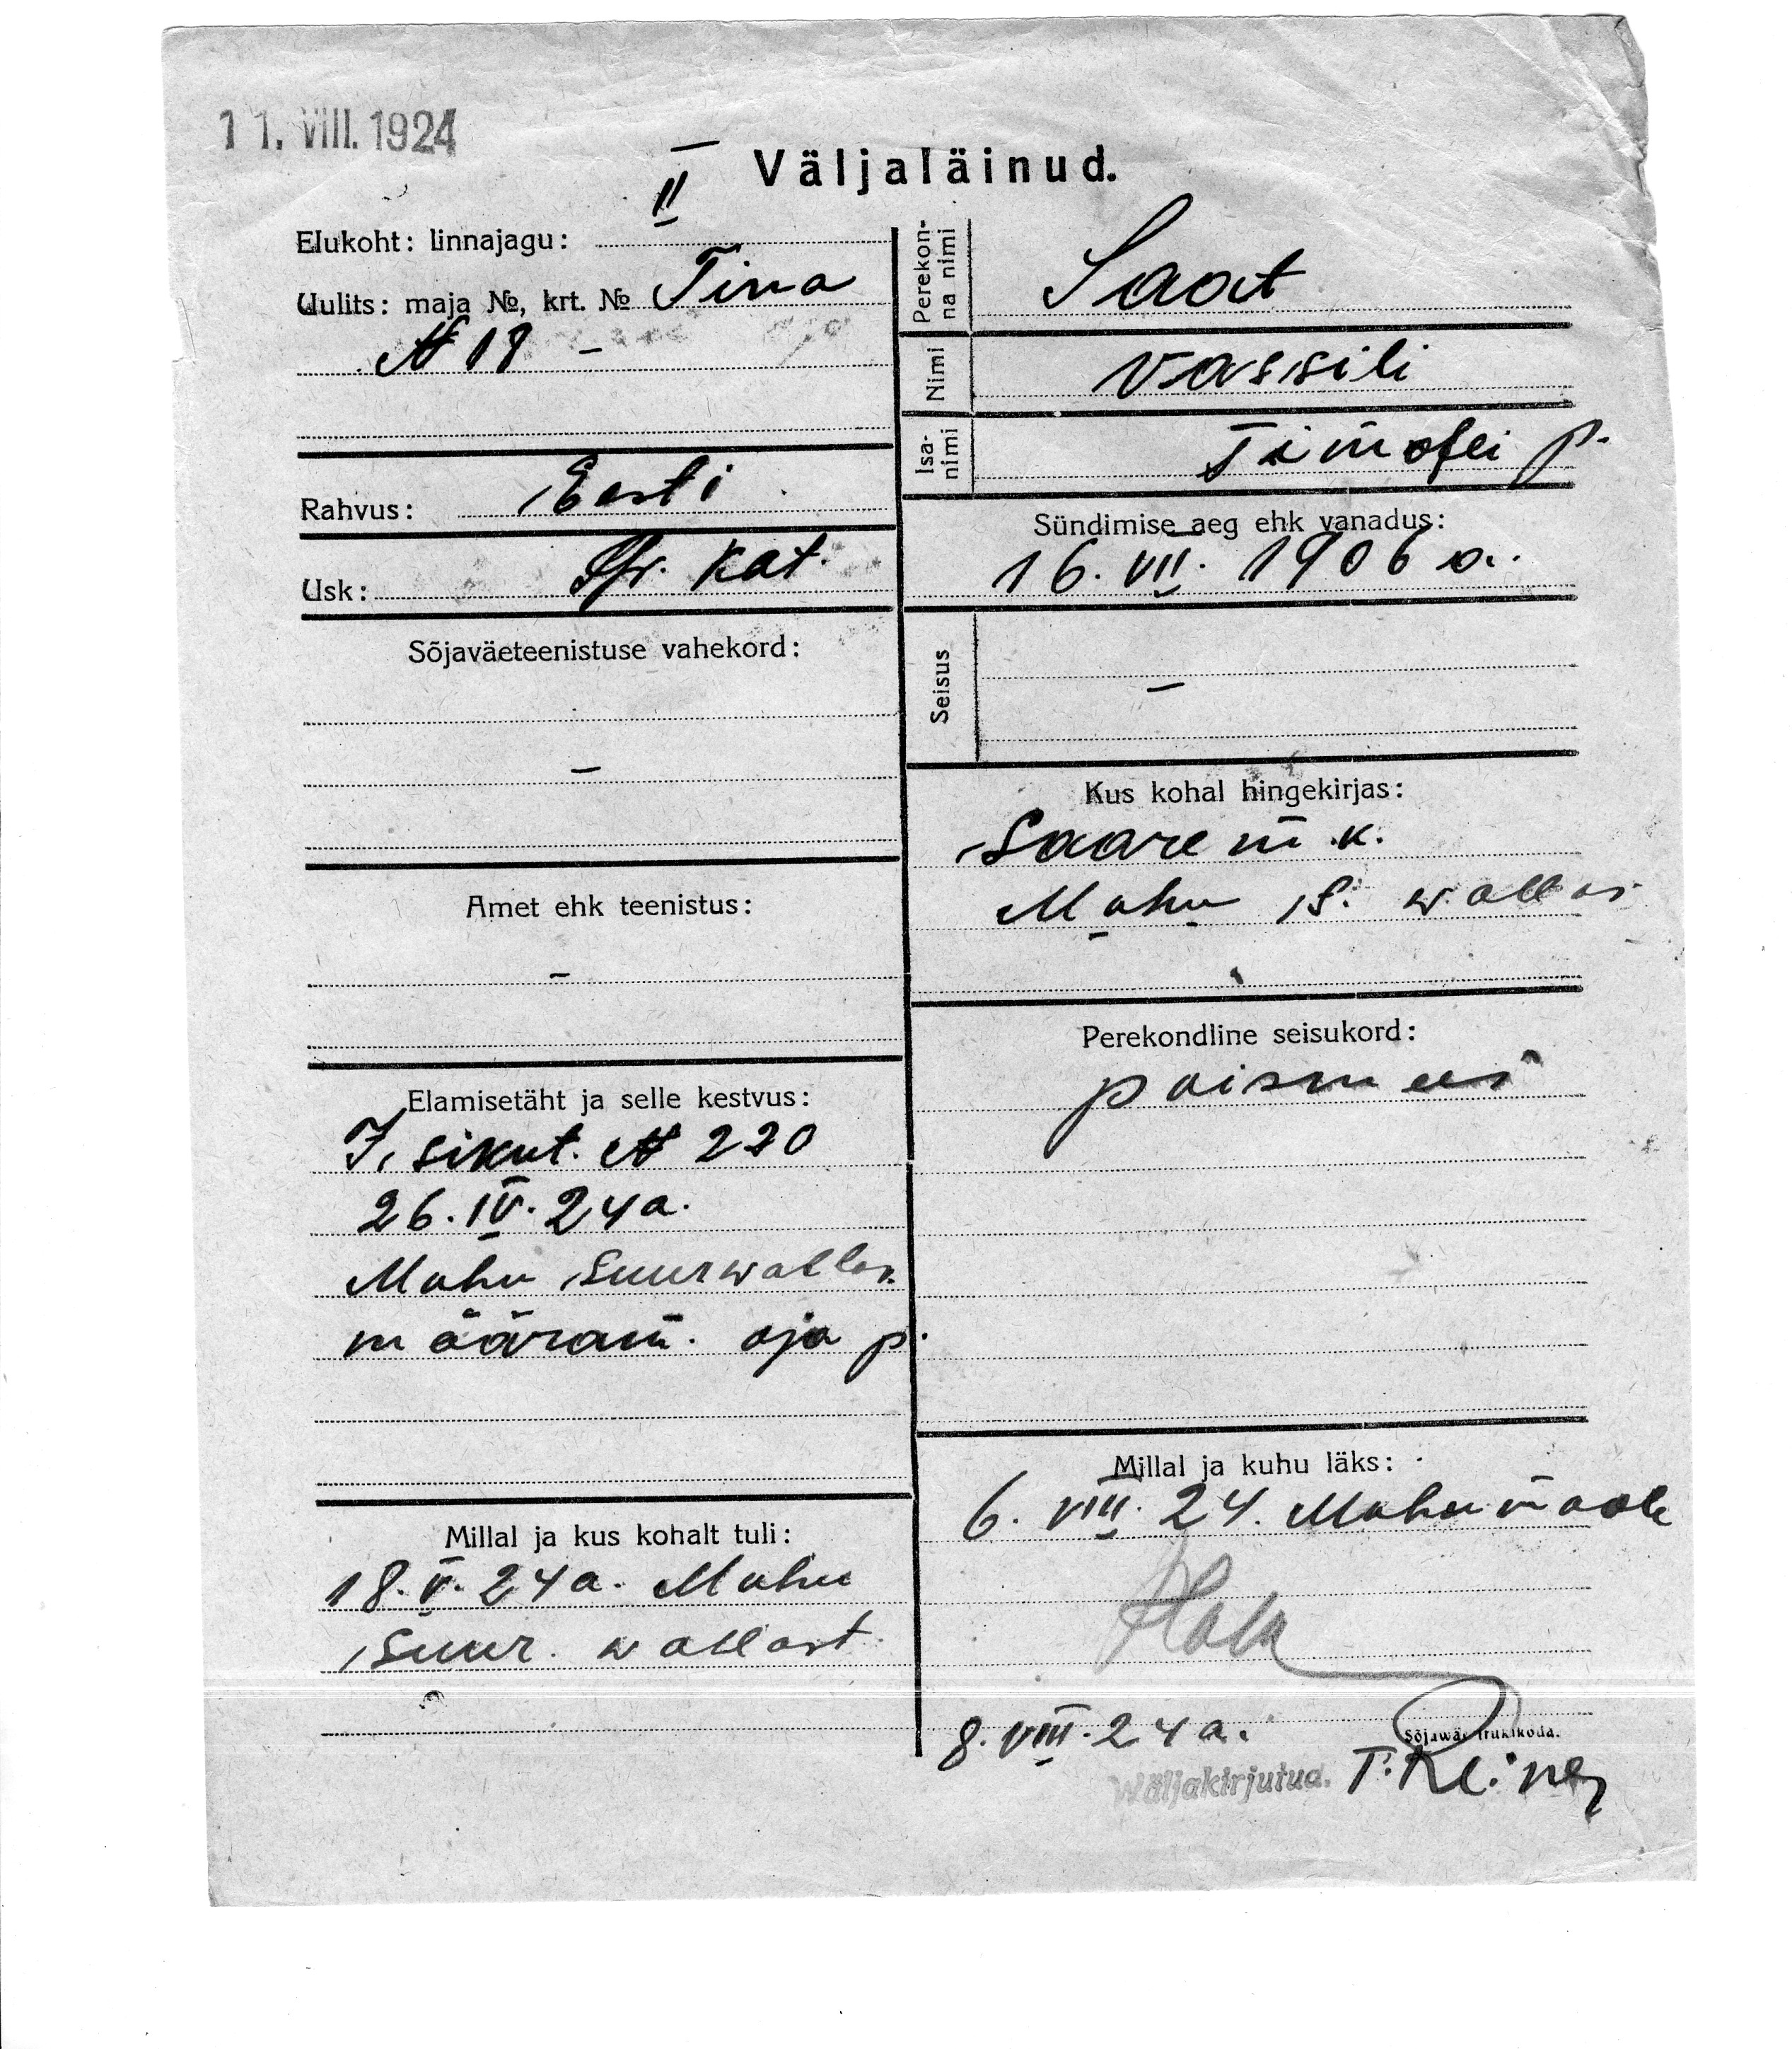 11. VIII. 1924
Väljaläinud.
Elukoht: linnajagu: II
Uulits: maja №, krt. № Tina
№ 18 –
Rahvus: Eesti
Usk: kat.
Sõjaväeteenistuse vahekord:
–
Amet ehk teenistus:
–
Elamisetäht ja selle kestvus:
I, sikut. № 220
26. IV. 24 a.
Muhu Suurwallas
määram. aja p.
Millal ja kus kohalt tuli:
18. V. 24 a. Muhu
suur. wallast
Perekonna nimi Saat
Nimi Vassili
Isanimi Timofei p.
Sündimise aeg ehk vanadus:
16. VII. 1906 a.
Seisus
–
Kus kohal hingekirjas:
Saare m. k.
Muhu S. wallas
Perekondline seisukord:
poismees
Millal ja kuhu läks:
6. VIII. 24. Muhumaale
8. VIII. 24 a.
Sõjawäe trükikoda.
Wäljakirjutud.